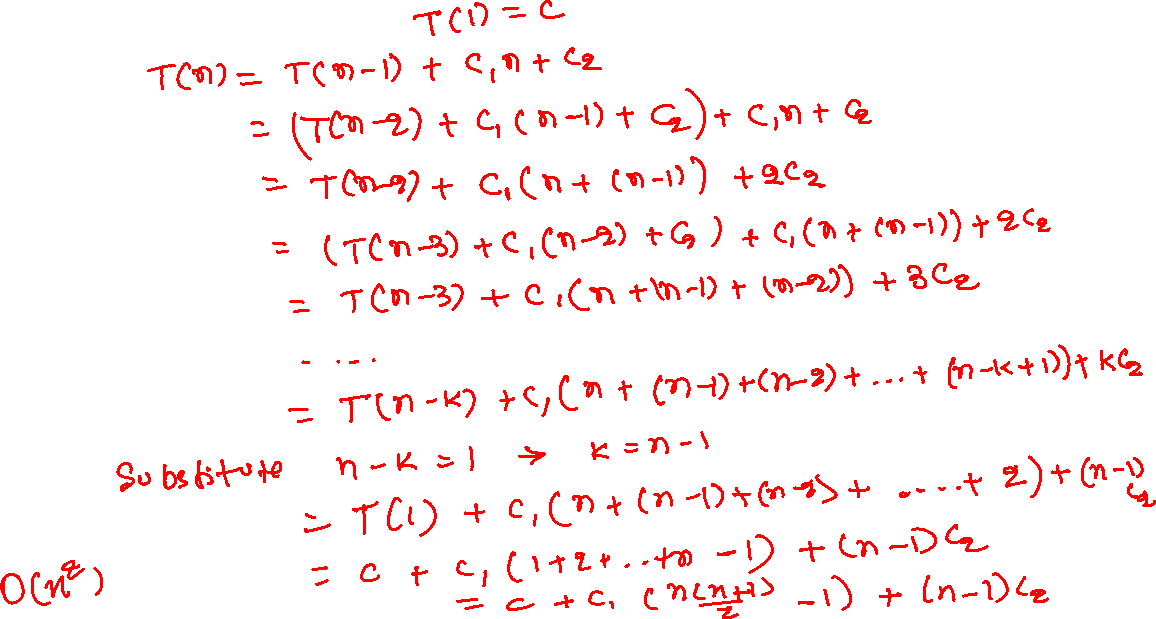 T(1) = C
T(n) = T(n-1) + C₁n + C₂
= (T(n-2) + C₁(n-1) + C₂) + C₁n + C₂
= T(n-2) + C₁(n + (n-1)) + 2C₂
= (T(n-3) + C₁(n-2) + C₂) + C₁(n + (n-1)) + 2C₂
= T(n-3) + C₁(n + (n-1) + (n-2)) + 3C₂
- - - .
= T(n-k) + C₁(n + (n-1) + (n-2) + ... + (n-k+1)) + kC₂
Substitute n-k = 1 → k = n-1
= T(1) + C₁(n + (n-1) + (n-2) + ..... + 2) + (n-1)C₂
= C + C₁(1+2+...+n - 1) + (n-1)C₂
O(n²) = C + C₁(n(n+1)/2 - 1) + (n-1)C₂